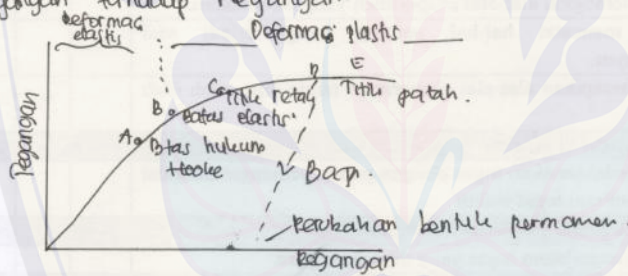 terhadap Regangan
Deformasi elastis
Deformasi plastis
Tegangan
A Batas hukum Hooke
B Batas elastis
C Titik retak
D
E
Titik patah.
perubahan bentuk permanen.
Regangan